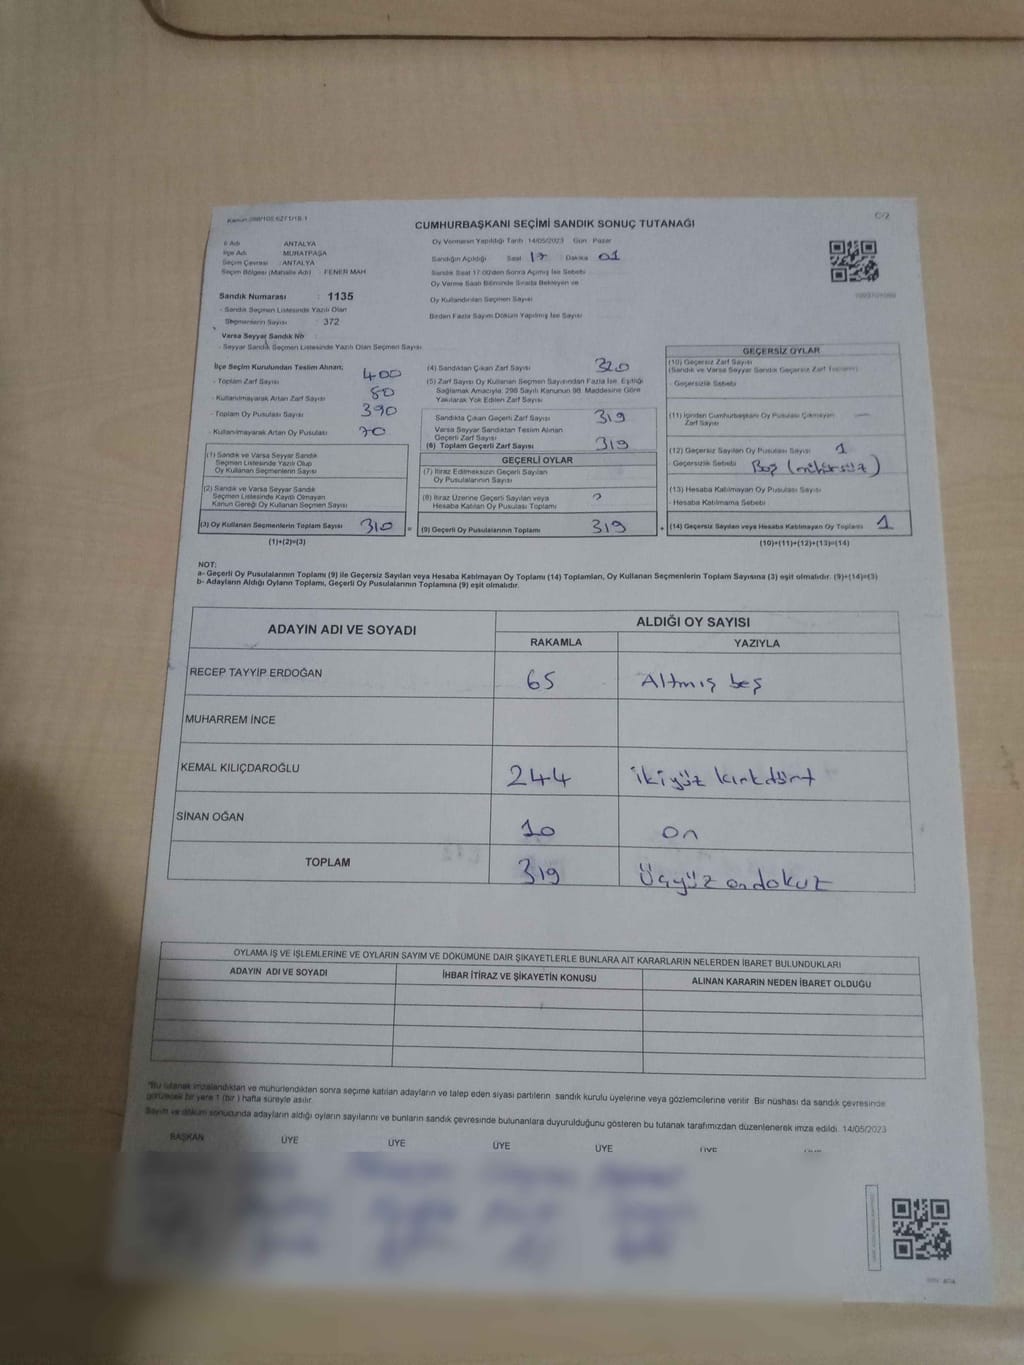 CUMHURBAŞKANI SEÇİMİ SANDIK SONUÇ TUTANAĞI
C/2
İl Adı ANTALYA
İlçe Adı MURATPAŞA
Seçim Çevresi : ANTALYA
Seçim Bölgesi (Mahalle Adı) : FENER MAH
Sandık Numarası : 1135
- Sandık Seçmen Listesinde Yazılı Olan
Seçmenlerin Sayısı : 372
Varsa Seyyar Sandık No
- Seyyar Sandık Seçmen Listesinde Yazılı Olan Seçmen Sayısı
Oy Vermenin Yapıldığı Tarih 14/05/2023 Gün Pazar
Sandığın Açıldığı Saat 17 : Dakika 01
Sandık Saat 17:00'den Sonra Açılmış İse Sebebi
Oy Verme Saati Bitiminde Sırada Bekleyen ve
Oy Kullandırılan Seçmen Sayısı
Birden Fazla Sayım Döküm Yapılmış İse Sayısı
İlçe Seçim Kurulundan Teslim Alınan;
- Toplam Zarf Sayısı 400
- Kullanılmayarak Artan Zarf Sayısı 80
- Toplam Oy Pusulası Sayısı 390
- Kullanılmayarak Artan Oy Pusulası 70
(1) Sandık ve Varsa Seyyar Sandık
Seçmen Listesinde Yazılı Olup
Oy Kullanan Seçmenlerin Sayısı
(2) Sandık ve Varsa Seyyar Sandık
Seçmen Listesinde Kayıtlı Olmayan
Kanun Gereği Oy Kullanan Seçmen Sayısı
(3) Oy Kullanan Seçmenlerin Toplam Sayısı 310 =
(1)+(2)=(3)
(4) Sandıktan Çıkan Zarf Sayısı 320
(5) Zarf Sayısı Oy Kullanan Seçmen Sayısından Fazla İse, Eşitliği
Sağlamak Amacıyla, 298 Sayılı Kanunun 98. Maddesine Göre
Yakılarak Yok Edilen Zarf Sayısı
Sandıkta Çıkan Geçerli Zarf Sayısı 319
Varsa Seyyar Sandıktan Teslim Alınan
Geçerli Zarf Sayısı
(6) Toplam Geçerli Zarf Sayısı 319
GEÇERLİ OYLAR
(7) İtiraz Edilmeksizin Geçerli Sayılan
Oy Pusulalarının Sayısı
(8) İtiraz Üzerine Geçerli Sayılan veya
Hesaba Katılan Oy Pusulası Toplamı
(9) Geçerli Oy Pusulalarının Toplamı 319 +
GEÇERSİZ OYLAR
(10) Geçersiz Zarf Sayısı
(Sandık ve Varsa Seyyar Sandık Geçersiz Zarf Toplamı)
- Geçersizlik Sebebi
(11) İçinden Cumhurbaşkanı Oy Pusulası Çıkmayan
Zarf Sayısı —
(12) Geçersiz Sayılan Oy Pusulası Sayısı 1
- Geçersizlik Sebebi Boş (mühürsüz)
(13) Hesaba Katılmayan Oy Pusulası Sayısı
- Hesaba Katılmama Sebebi
(14) Geçersiz Sayılan veya Hesaba Katılmayan Oy Toplamı 1
(10)+(11)+(12)+(13)=(14)
NOT:
a- Geçerli Oy Pusulalarının Toplamı (9) ile Geçersiz Sayılan veya Hesaba Katılmayan Oy Toplamı (14) Toplamları, Oy Kullanan Seçmenlerin Toplam Sayısına (3) eşit olmalıdır. (9)+(14)=(3)
b- Adayların Aldığı Oyların Toplamı, Geçerli Oy Pusulalarının Toplamına (9) eşit olmalıdır.
ADAYIN ADI VE SOYADI
ALDIĞI OY SAYISI
RAKAMLA YAZIYLA
RECEP TAYYİP ERDOĞAN 65 Altmış beş
MUHARREM İNCE
KEMAL KILIÇDAROĞLU 244 ikiyüz kırkdört
SİNAN OĞAN 10 on
TOPLAM 319 Üçyüz ondokuz
OYLAMA İŞ VE İŞLEMLERİNE VE OYLARIN SAYIM VE DÖKÜMÜNE DAİR ŞİKAYETLERLE BUNLARA AİT KARARLARIN NELERDEN İBARET BULUNDUKLARI
ADAYIN ADI VE SOYADI İHBAR İTİRAZ VE ŞİKAYETİN KONUSU ALINAN KARARIN NEDEN İBARET OLDUĞU
*Bu tutanak imzalandıktan ve mühürlendikten sonra seçime katılan adayların ve talep eden siyasi partilerin sandık kurulu üyelerine veya gözlemcilerine verilir. Bir nüshası da sandık çevresinde
görülecek bir yere 1 (bir) hafta süreyle asılır.
Sayım ve döküm sonucunda adayların aldığı oyların sayılarını ve bunların sandık çevresinde bulunanlara duyurulduğunu gösteren bu tutanak tarafımızdan düzenlenerek imza edildi. 14/05/2023
BAŞKAN ÜYE ÜYE ÜYE ÜYE ÜYE